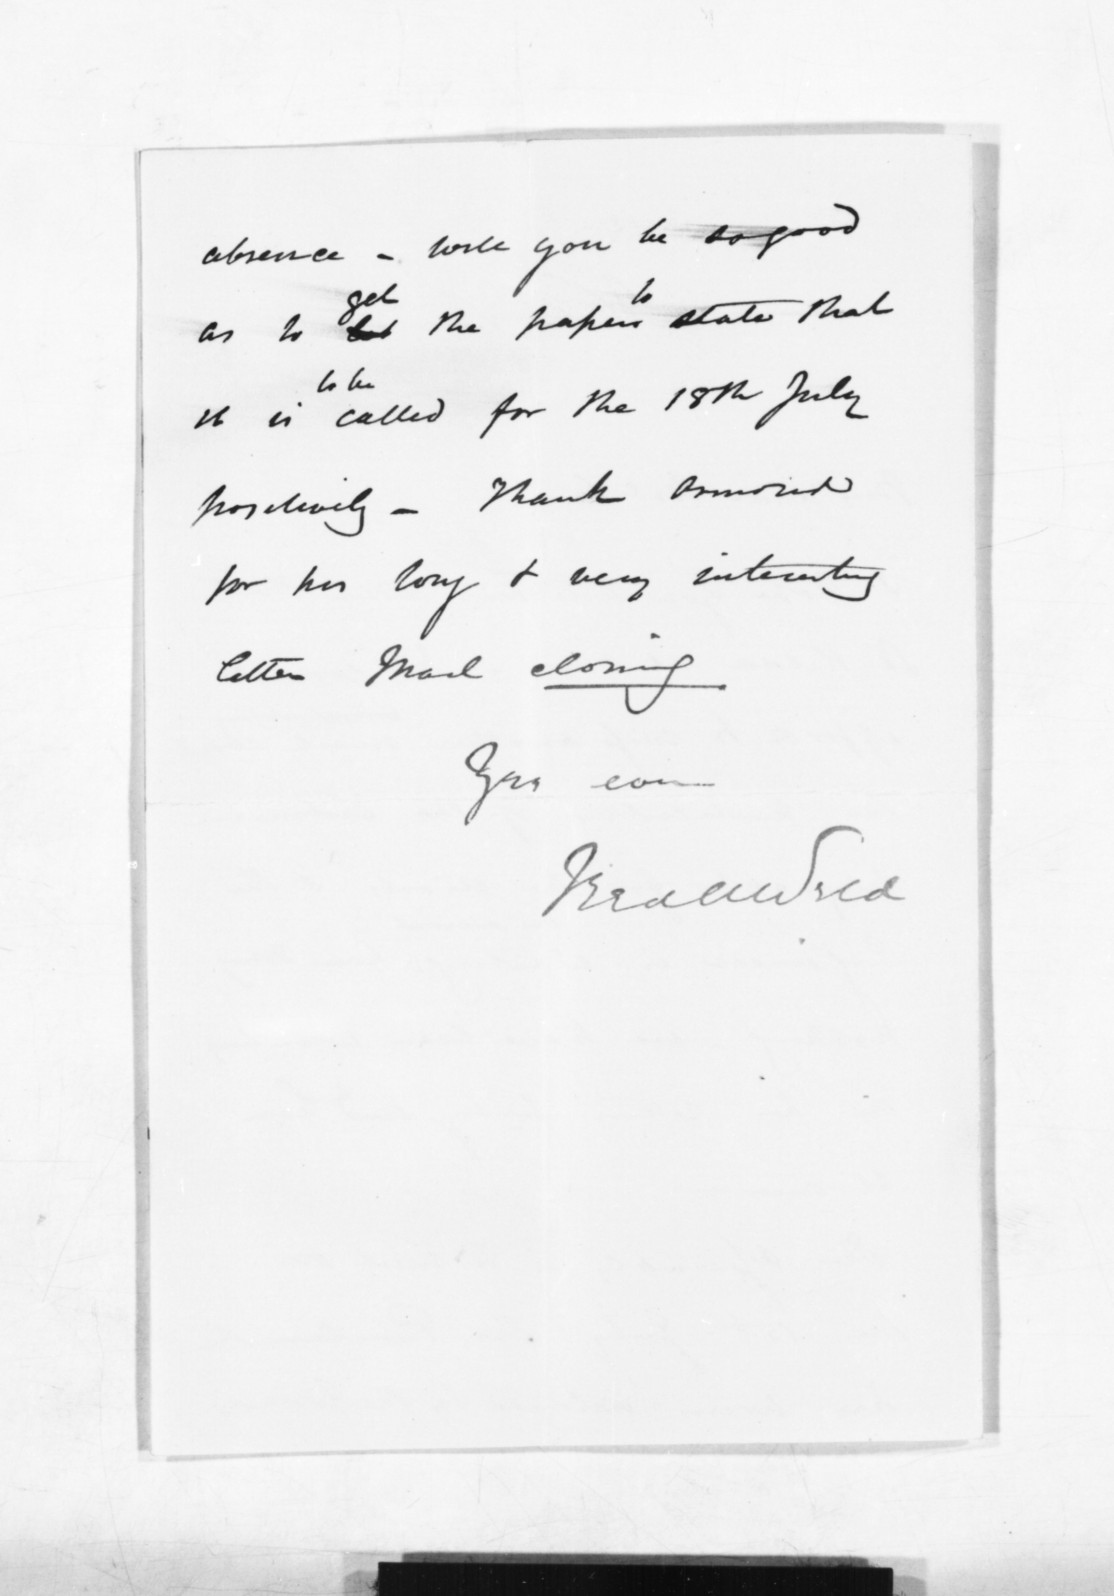 absence - will you be so good
as to get the papers to state that
it is to be called for the 18th July
positively - Thank Ormond
for his long & very interesting
letter Mail closing
Yrs
Fred A Weld